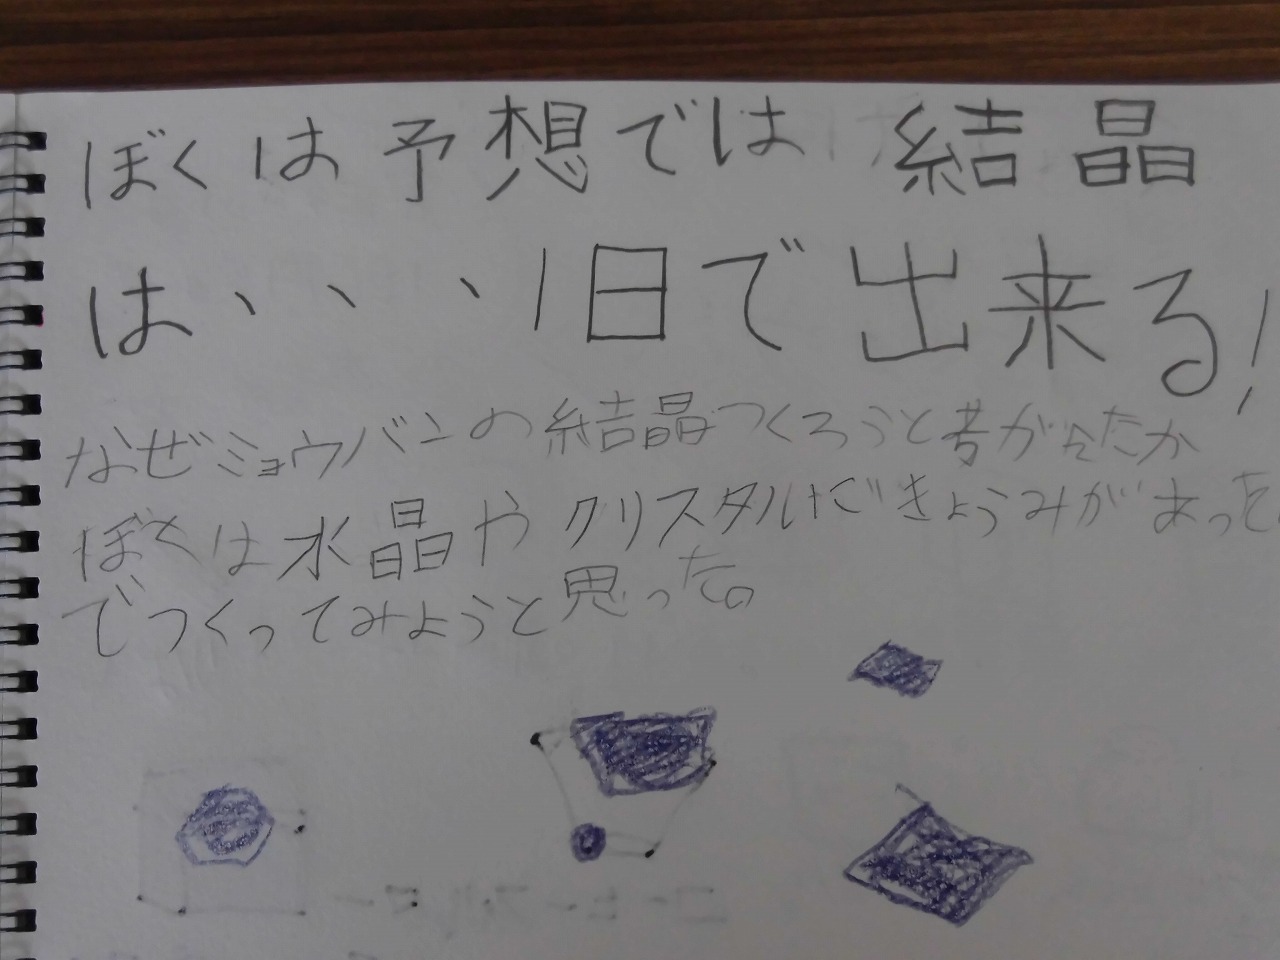 ぼくは予想では結晶
は、、、1日で出来る!
なぜミョウバンの結晶つくろうと考がえたか
ぼくは水晶やクリスタルにきょうみがあった
でつくってみようと思った。